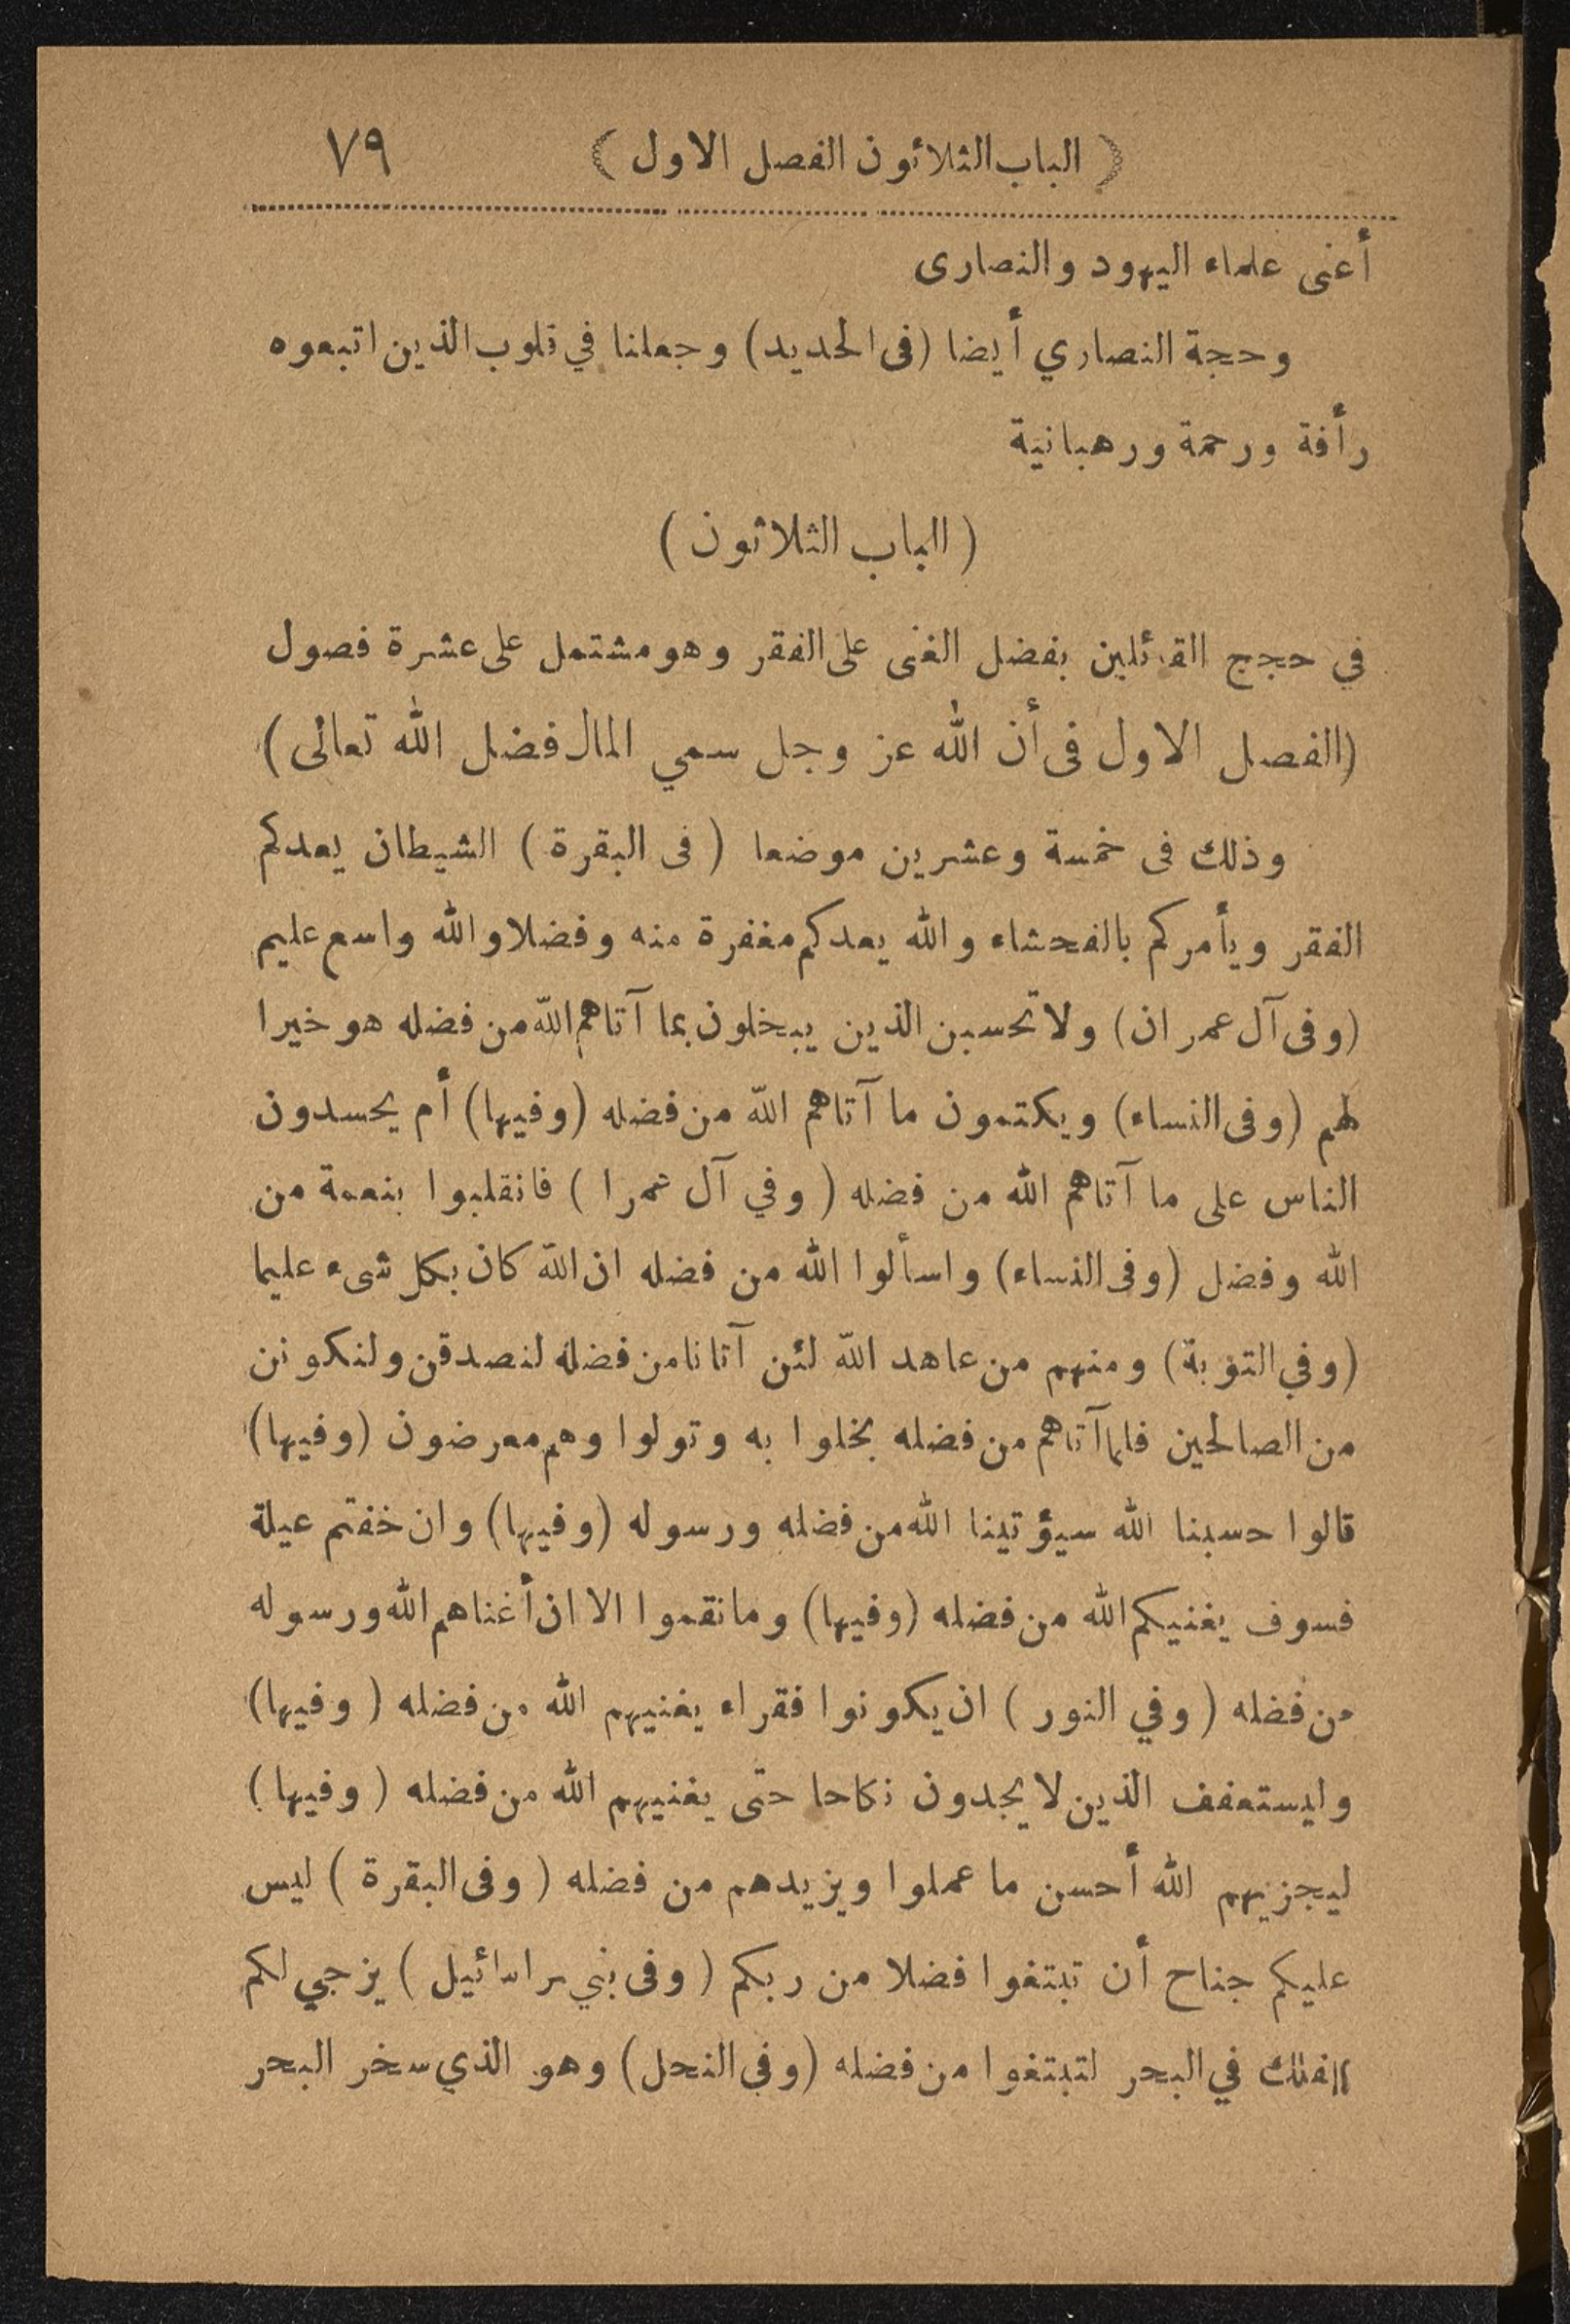 ( الباب الثلاثون الفصل الاول ) ٧٩
أعنى علماء اليهود والنصارى
وحجة النصاري أيضا (فى الحديد) وجعلنا في قلوب الذين اتبعوه
رأفة ورحمة ورهبانية
( الباب الثلاثون )
في حجج القائلين بفضل الغنى على الفقر وهو مشتمل على عشرة فصول
(الفصل الاول فى أن الله عز وجل سمي المال فضل الله تعالى)
وذلك فى خمسة وعشرين موضعا ( فى البقرة ) الشيطان يعدكم
الفقر ويأمركم بالفحشاء والله يعدكم مغفرة منه وفضلا والله واسع عليم
(وفى آل عمران) ولا تحسبن الذين يبخلون بما آتاهم الله من فضله هو خيرا
لهم (وفى النساء) ويكتمون ما آتاهم الله من فضله (وفيها) أم يحسدون
الناس على ما آتاهم الله من فضله ( وفي آل عمرا ) فانقلبوا بنعمة من
الله وفضل (وفى النساء) واسألوا الله من فضله ان الله كان بكل شىء عليما
(وفي التوبة) ومنهم من عاهد الله لئن آتانا من فضله لنصدقن ولنكونن
من الصالحين فلما آتاهم من فضله بخلوا به وتولوا وهم معرضون (وفيها)
قالوا حسبنا الله سيؤتينا الله من فضله ورسوله (وفيها) وان خفتم عيلة
فسوف يغنيكم الله من فضله (وفيها) وما نقموا الا ان أغناهم الله ورسوله
من فضله ( وفي النور ) ان يكونوا فقراء يغنيهم الله من فضله ( وفيها)
وليستعفف الذين لا يجدون نكاحا حتى يغنيهم الله من فضله ( وفيها )
ليجزيهم الله أحسن ما عملوا ويزيدهم من فضله ( وفى البقرة ) ليس
عليكم جناح أن تبتغوا فضلا من ربكم ( وفى بني سرائيل ) يزجي لكم
الفلك في البحر لتبتغوا من فضله (وفى النحل) وهو الذي سخر البحر